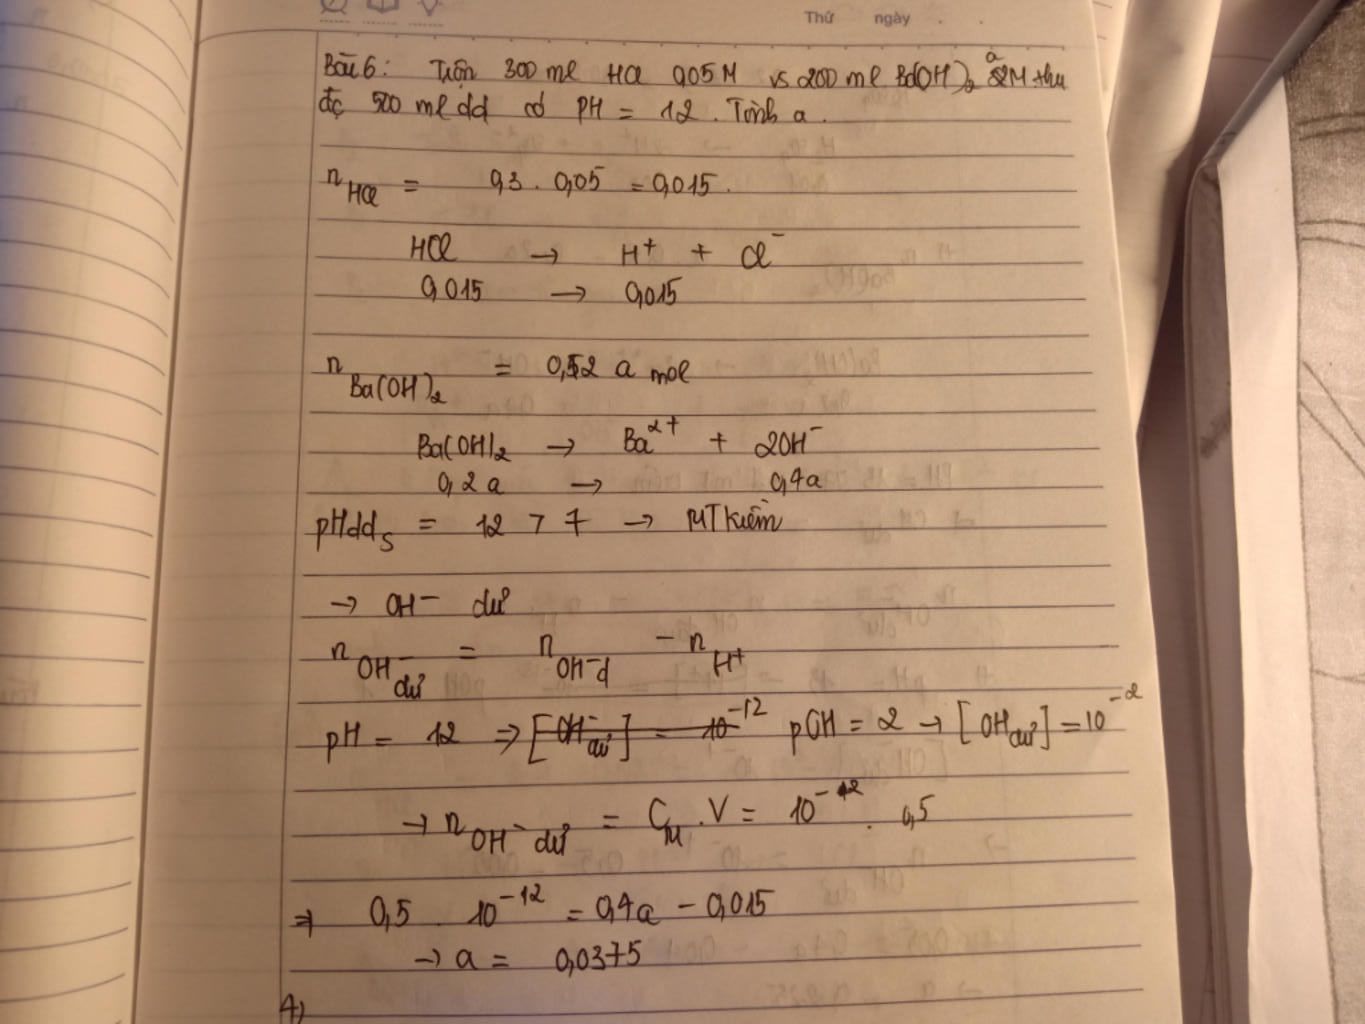 Thứ ngày . .
Bài 6: Trộn 300 ml HCl 0,05M vs 200 ml Ba(OH)₂ a M thu
đc 500 ml dd có PH = 12. Tính a.
n HCl = 0,3 . 0,05 = 0,015.
HCl → H⁺ + Cl⁻
0,015 → 0,015
n Ba(OH)₂ = 0,2 a mol
Ba(OH)₂ → Ba²⁺ + 2OH⁻
0,2a → 0,4a
pHdds = 12 > 7 → MT kiềm
→ OH⁻ dư
n OH⁻dư = n OH⁻đ - n H⁺
pH = 12 ⇒ [OH⁻dư] = 10⁻¹² pOH = 2 → [OHdư] = 10⁻²
→ n OH⁻ dư = C_M . V = 10⁻² . 0,5
⇒ 0,5 . 10⁻¹² = 0,4a - 0,015
→ a = 0,0375
4)